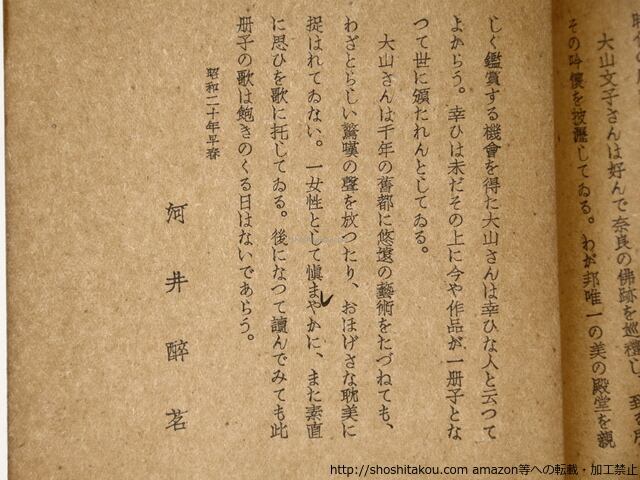 大山文子さんは好んで奈良の佛跡を巡禮し、到る
その吟懷を披瀝してゐる。わが邦唯一の美の殿堂を親
しく鑑賞する機會を得た大山さんは幸ひな人と云つて
よからう。幸ひは未だその上に今や作品が一册子とな
つて世に頒たれんとしてゐる。
大山さんは千年の舊都に悠遠の藝術をたづねても、
わざとらしい驚嘆の聲を放つたり、おほげさな耽美に
捉はれてゐない。一女性として愼まやかに、また素直
に思ひを歌に托してゐる。後になつて讀んでみても此
册子の歌は飽きのくる日はないであらう。
昭和二十年早春
河井醉茗
http://shoshitakou.com amazon等への転載・加工禁止